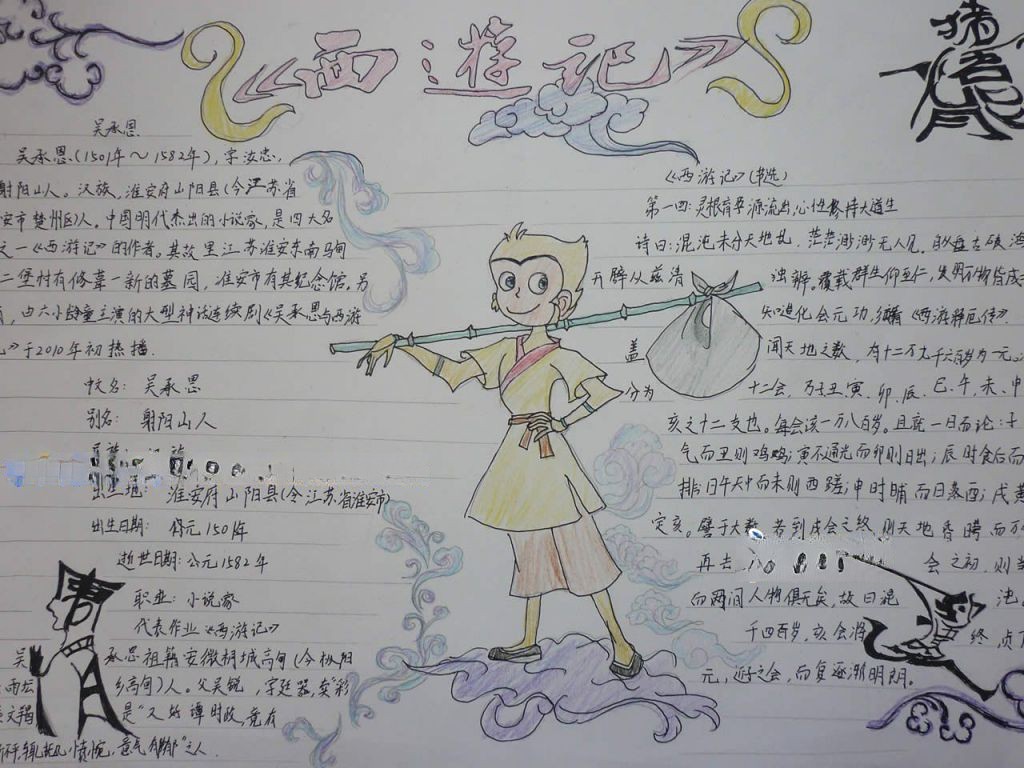 《西游记》
吴承恩
吴承恩(1501年～1582年),字汝忠,
射阳山人。汉族,淮安府山阳县(今江苏省
安市楚州区)人。中国明代杰出的小说家,是四大名
之一《西游记》的作者。其故里江苏淮安东南马甸
二堡村有修葺一新的墓园,淮安市有其纪念馆。另
,由六小龄童主演的大型神话连续剧《吴承恩与西游
》于2010年初热播.
本名: 吴承恩
别名: 射阳山人
出生地: 淮安府山阳县(今江苏省淮安市)
出生日期: 公元1501年
逝世日期:公元1582年
职业: 小说家
代表作业《西游记》
吴承恩祖籍安徽桐城高甸(今枞阳
雨坛乡高甸)人。父吴锐,字廷器,卖“彩
文豱是“又好谭时政,竟有
所不平,辄抚几愤惋,意气郁郁”之人.
猪八戒
《西游记》(书选)
第一回:灵根育孕源流出,心性修持大道生
诗曰:混沌未分天地乱,茫茫渺渺无人见.自从盘古破鸿
开辟从兹清浊辨。覆载群生仰至仁,发明万物皆成
知造化会元功,须看《西游释厄传》.
盖闻天地之数,有十二万九千六百岁为一元。
分为十二会,乃子丑、寅、卯、辰、巳、午、未、申
亥之十二支也。每会该一万八百岁。且就一日而论:子
气而丑则鸡鸣;寅不通光而卯则日出;辰时食后而
排;日午天中而未则西蹉;申时晡而日落酉;戌黄
定亥。譬于大数,若到戌会之终,则天地昏曚而不
再去 会之初,则当
向两间人物俱无矣,故曰混沌
千四百岁,亥会将终,贞下
元,近子之会,而复逐渐明朗。
唐